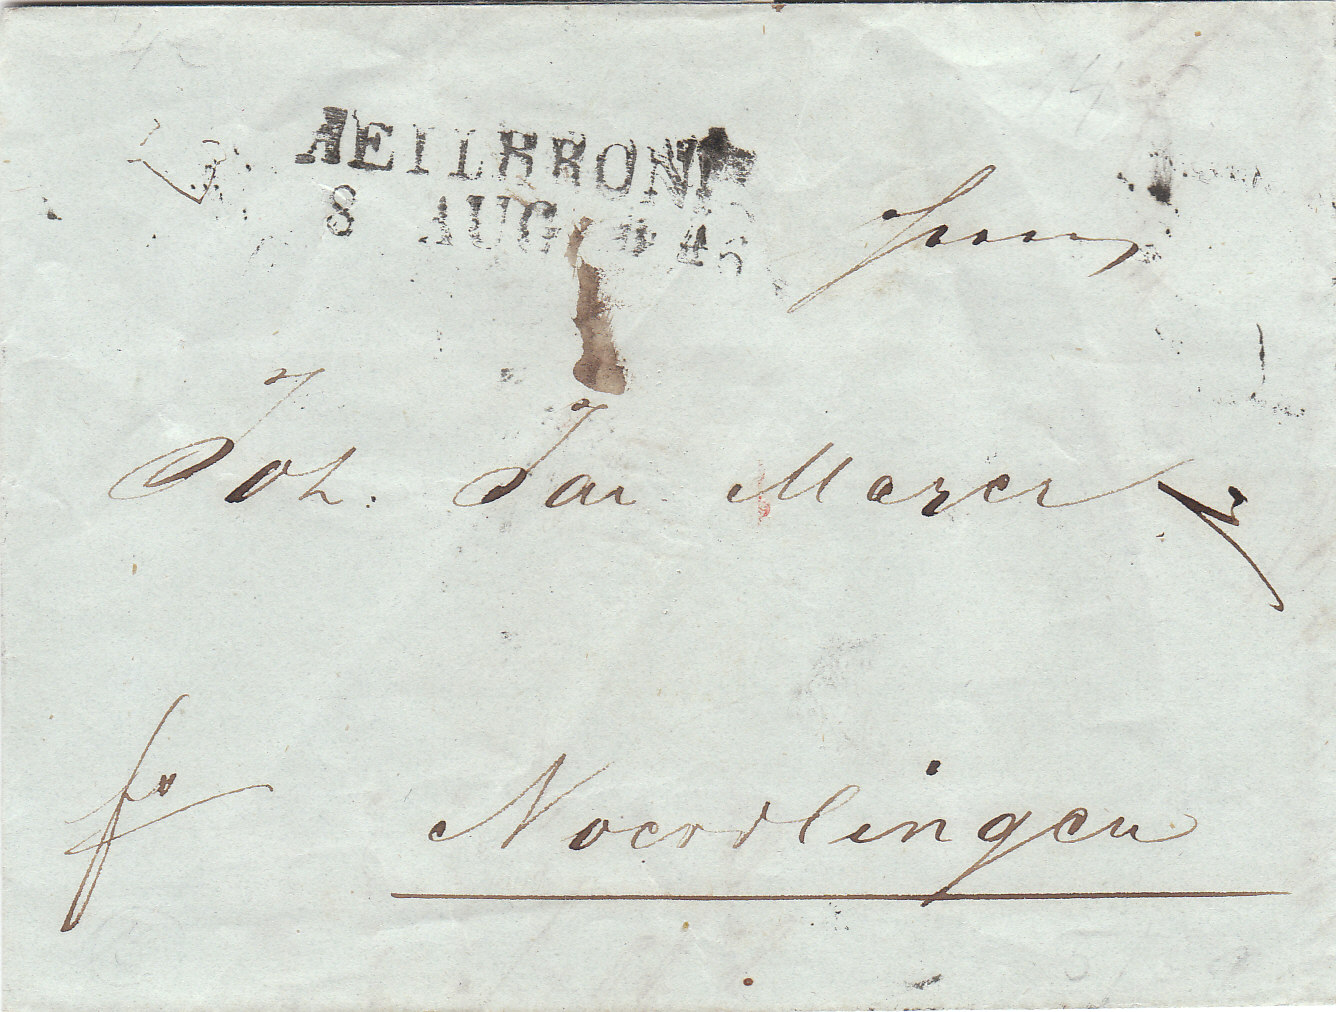 HEILBRONN
8 AUG 1846
Herrn
Joh. Jac Mayer
fr Noerdlingen